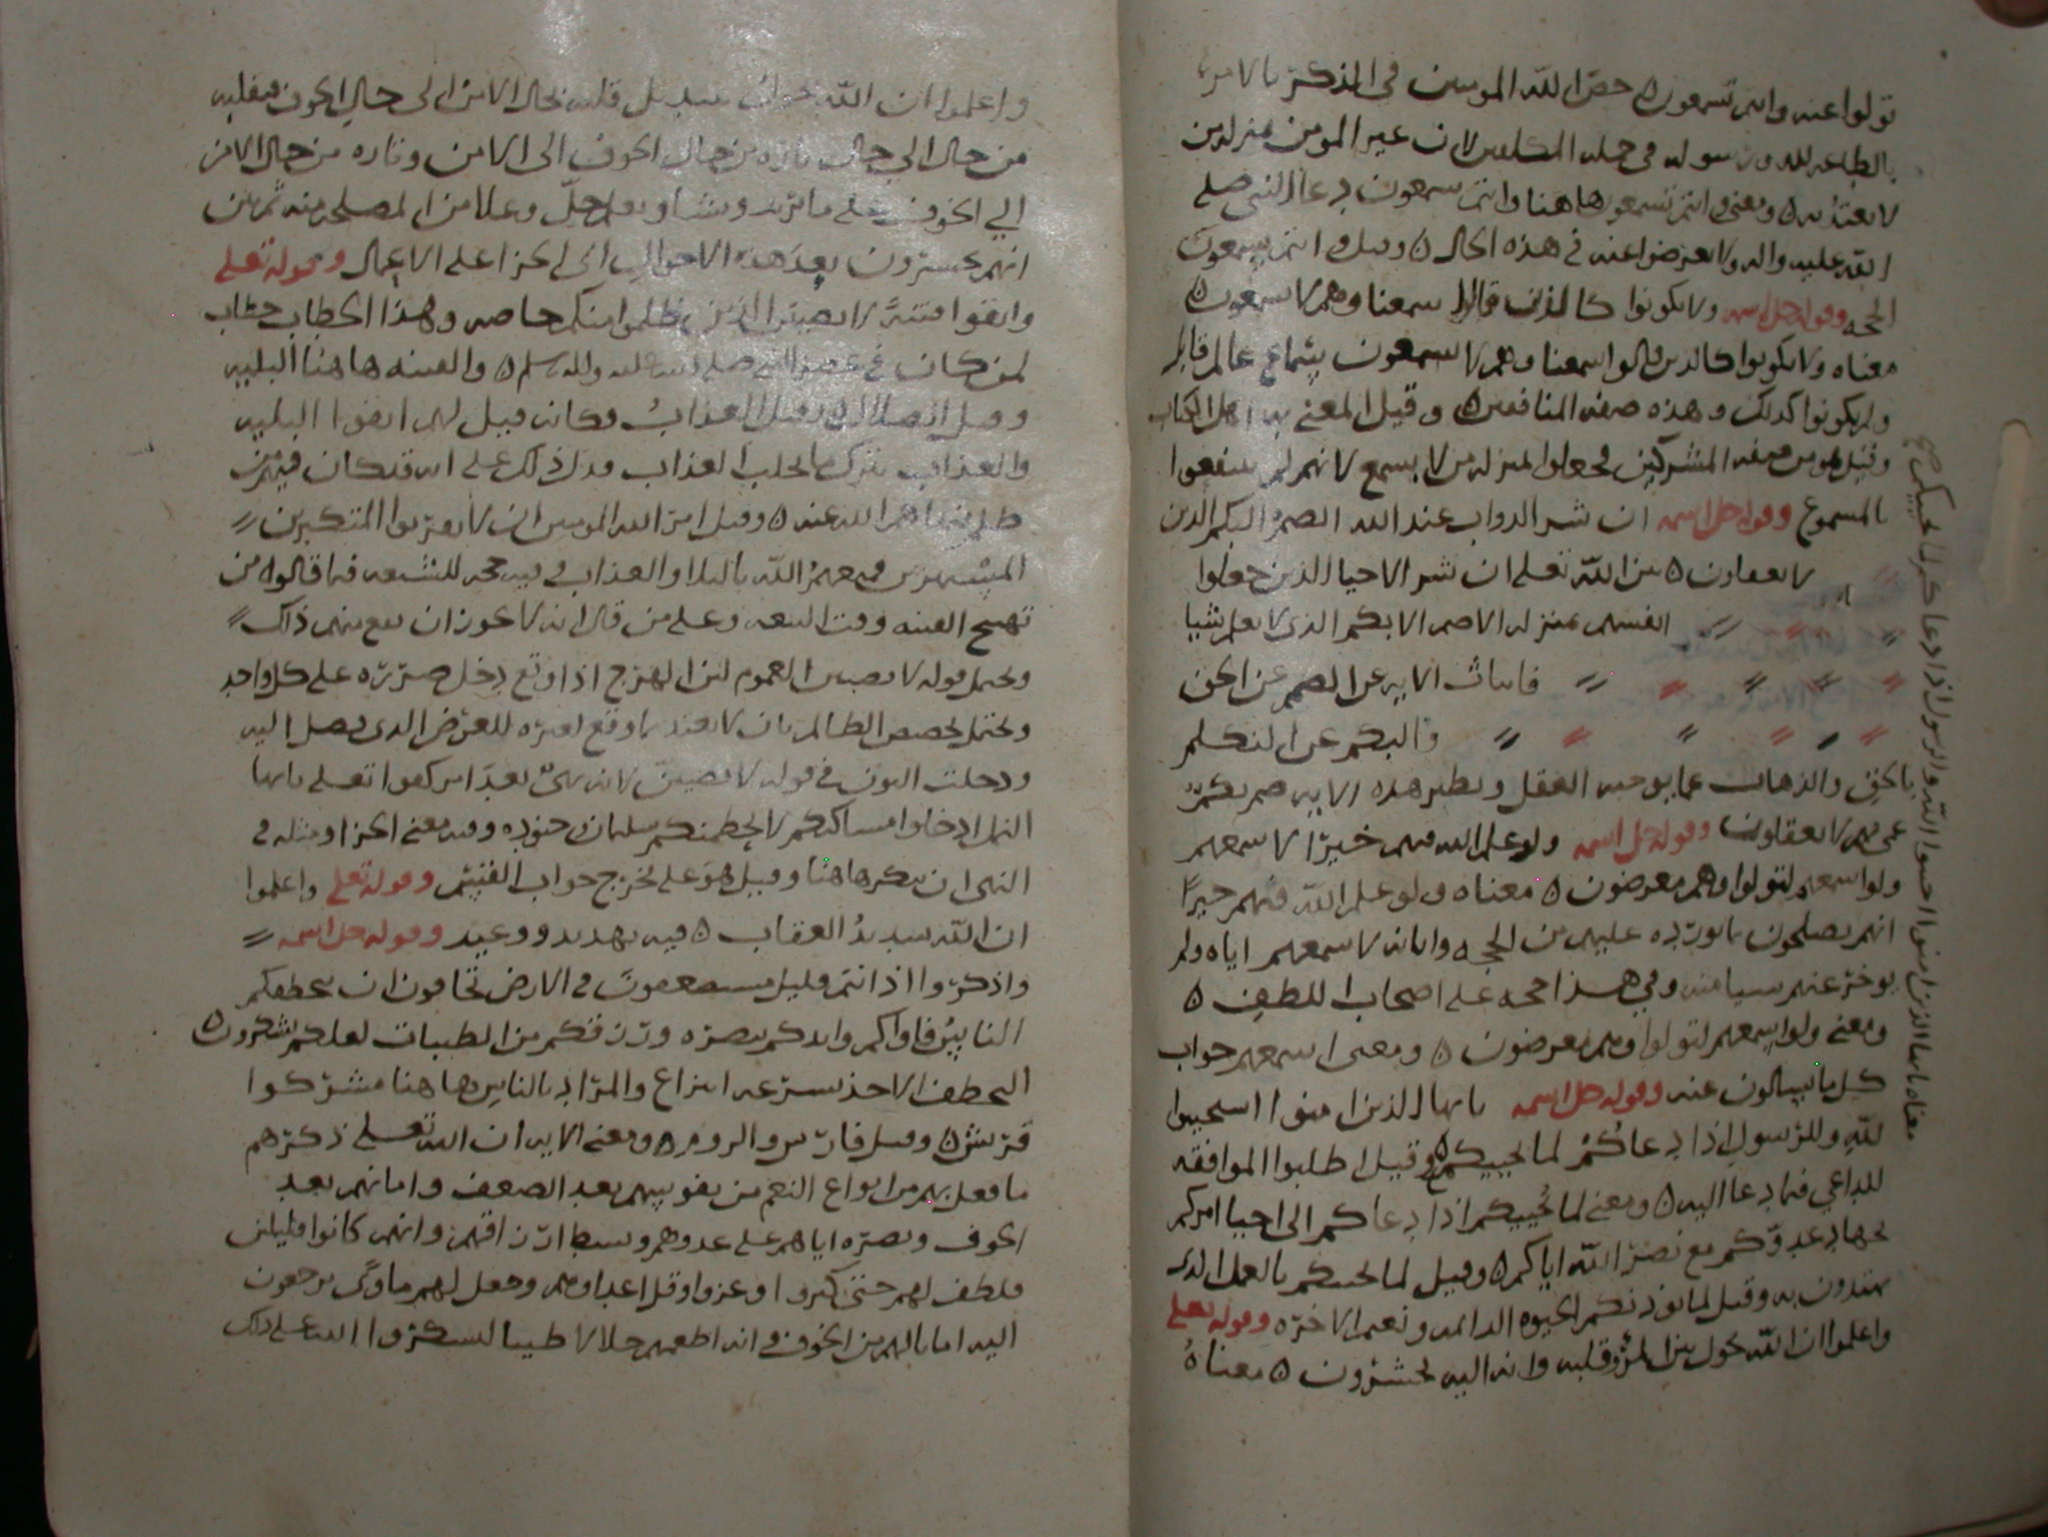 تولوا عنه وانتم تسمعون ٥ خص الله المومنين في الذكر بالامر
بالطاعه لله ورسوله في جمله المكلفين لان غير المومن منزله من
لا يعتد به ٥ ومعنى وانتم تسمعون هاهنا وانتم تسمعون دعا النبي صلى
الله عليه واله ولا تعرضوا عنه في هذه الحال ٥ وقيل وانتم تسمعون
الحجه وقوله جل اسمه ولا تكونوا كالذين قالوا سمعنا وهم لا يسمعون ٥
معناه ولا تكونوا كالذين قالوا سمعنا وهم لا يسمعون سماع عالم قابل
وليكونوا كذلك وهذه صفه المنافقين ٥ وقيل المعني به اهل الكتاب
وقيل هو من صفه المشركين فجعلوا بمنزله من لا يسمع لانهم لم ينتفعوا
بالمسموع وقوله جل اسمه ان شر الدواب عند الله الصم البكم الذين
لا يعقلون ٥ بين الله تعلى ان شر الاحيا الذين جعلوا
انفسهم بمنزله الاصم الابكم الذي لا يعلم شيا
فابانت الايه عن الصم عن الحق
والبكم عن التكلم
بالحق والذهاب عما يوجبه العقل ونظير هذه الايه صم بكم
عمي فهم لا يعقلون وقوله جل اسمه ولو علم الله فيهم خيرا لاسمعهم
ولو اسمعهم لتولوا وهم معرضون ٥ معناه ولو علم الله فيهم خيرا
انهم يصلحون بما يورده عليهم من الحجه واياته لاسمعهم اياه ولم
يوخر عنهم شيا منه وفي هذا حجه على اصحاب اللطف ٥
ومعنى ولو اسمعهم لتولوا وهم معرضون ٥ ومعنى اسمعهم جواب
كل ما يسالون عنه وقوله جل اسمه يا ايها الذين امنوا استجيبوا
لله وللرسول اذا دعاكم لما يحييكم ٥ وقيل اطلبوا الموافقه
للداعي فيما دعا اليه ٥ ومعنى لما يحييكم اذا دعاكم الى احيا امركم
بجهاد عدوكم مع نصر الله اياكم ٥ وقيل لما يحييكم بالعلم الذي
تهتدون به وقيل لما يورثكم الحيوه الدائمه ونعيم الاخره وقوله تعلى
واعلموا ان الله يحول بين المرء وقلبه وانه اليه تحشرون ٥ معناه
معناه يا ايها الذين امنوا اجيبوا الله والرسول اذا دعاكم لما يحييكم صح
واعلموا ان الله يحول تبديل قلبه بحال الامن الى حال الخوف فيقلبه
من حال الى حال تاره من حال الخوف الى الامن وتاره من حال الامن
الي الخوف على ما يريد ويشا ويعلم جل وعلا من المصلحه منه ثم بين
انهم يحشرون بعد هذه الاحوال الى الجزا على الاعمال وقوله تعلى
واتقوا فتنة لا تصيبن الذين ظلموا منكم خاصه وهذا الخطاب خطاب
لمن كان في عصر النبي صلى الله عليه واله وسلم ٥ والفتنه هاهنا البليه
وقيل الضلال ٥ وقيل العذاب فكانه قيل لهم اتقوا البليه
والعذاب بترك ما يجلب العذاب فدل ذلك على انه قد كان فيهم من
نهاهم الله عنه ٥ وقيل امر الله المومنين ان لا يقربوا المتكبرين
المستهزين فيعمهم الله بالبلا والعذاب وفيه حجه للشيعه فيما قالوه من
تهيج الفتنه وقت البيعه وعلى من قال انه لا يجوز ان يقع منهم ذلك
ويحتمل قوله لا تصيبن العموم لان الهرج اذا وقع دخل ضرره على كل واحد
ويحتمل تخصيص الظالم بان لا يعتد بما وقع لغيره للعوض الذي يصل اليه
ودخلت النون في قوله لا تصيبن لانه نهي بعد امر كقوله تعلى يا ايها
النمل ادخلوا مساكنكم لا يحطمنكم سليمان وجنوده وفيه معنى الجزا ومثله في
النهي ان يكر هاهنا وقيل هو على مخرج جواب القسم وقوله تعلى واعلموا
ان الله شديد العقاب ٥ فيه تهديد ووعيد وقوله جل اسمه
واذكروا اذ انتم قليل مستضعفون في الارض تخافون ان يتخطفكم
الناس فاواكم وايدكم بنصره ورزقكم من الطيبات لعلكم تشكرون ٥
التخطف الاخذ بسرعه انتزاع والمراد بالناس هاهنا مشركوا
قريش ٥ وقيل فارس والروم ٥ ومعنى الايه ان الله تعلى ذكرهم
ما فعل بهم من انواع النعم من تقويتهم بعد الضعف وامانهم بعد
الخوف ونصره اياهم على عدوهم وبسط ارزاقهم وانهم كانوا قليلين
فلطف لهم حتى كثروا وعزوا وقل اعداوهم وجعل لهم ماوى يرجعون
اليه امانا لهم من الخوف وانه اطعمهم حلالا طيبا ليشكروا الله على ذلك